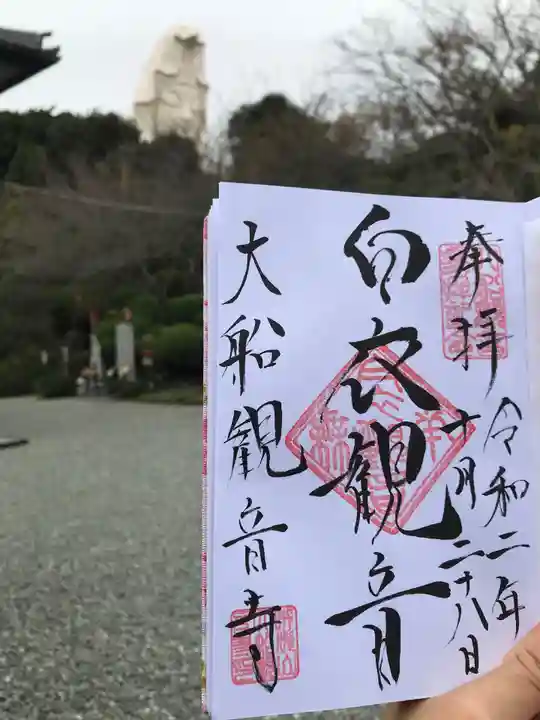 奉拝
令和二年
十月二十八日
白衣観音
大船観音寺